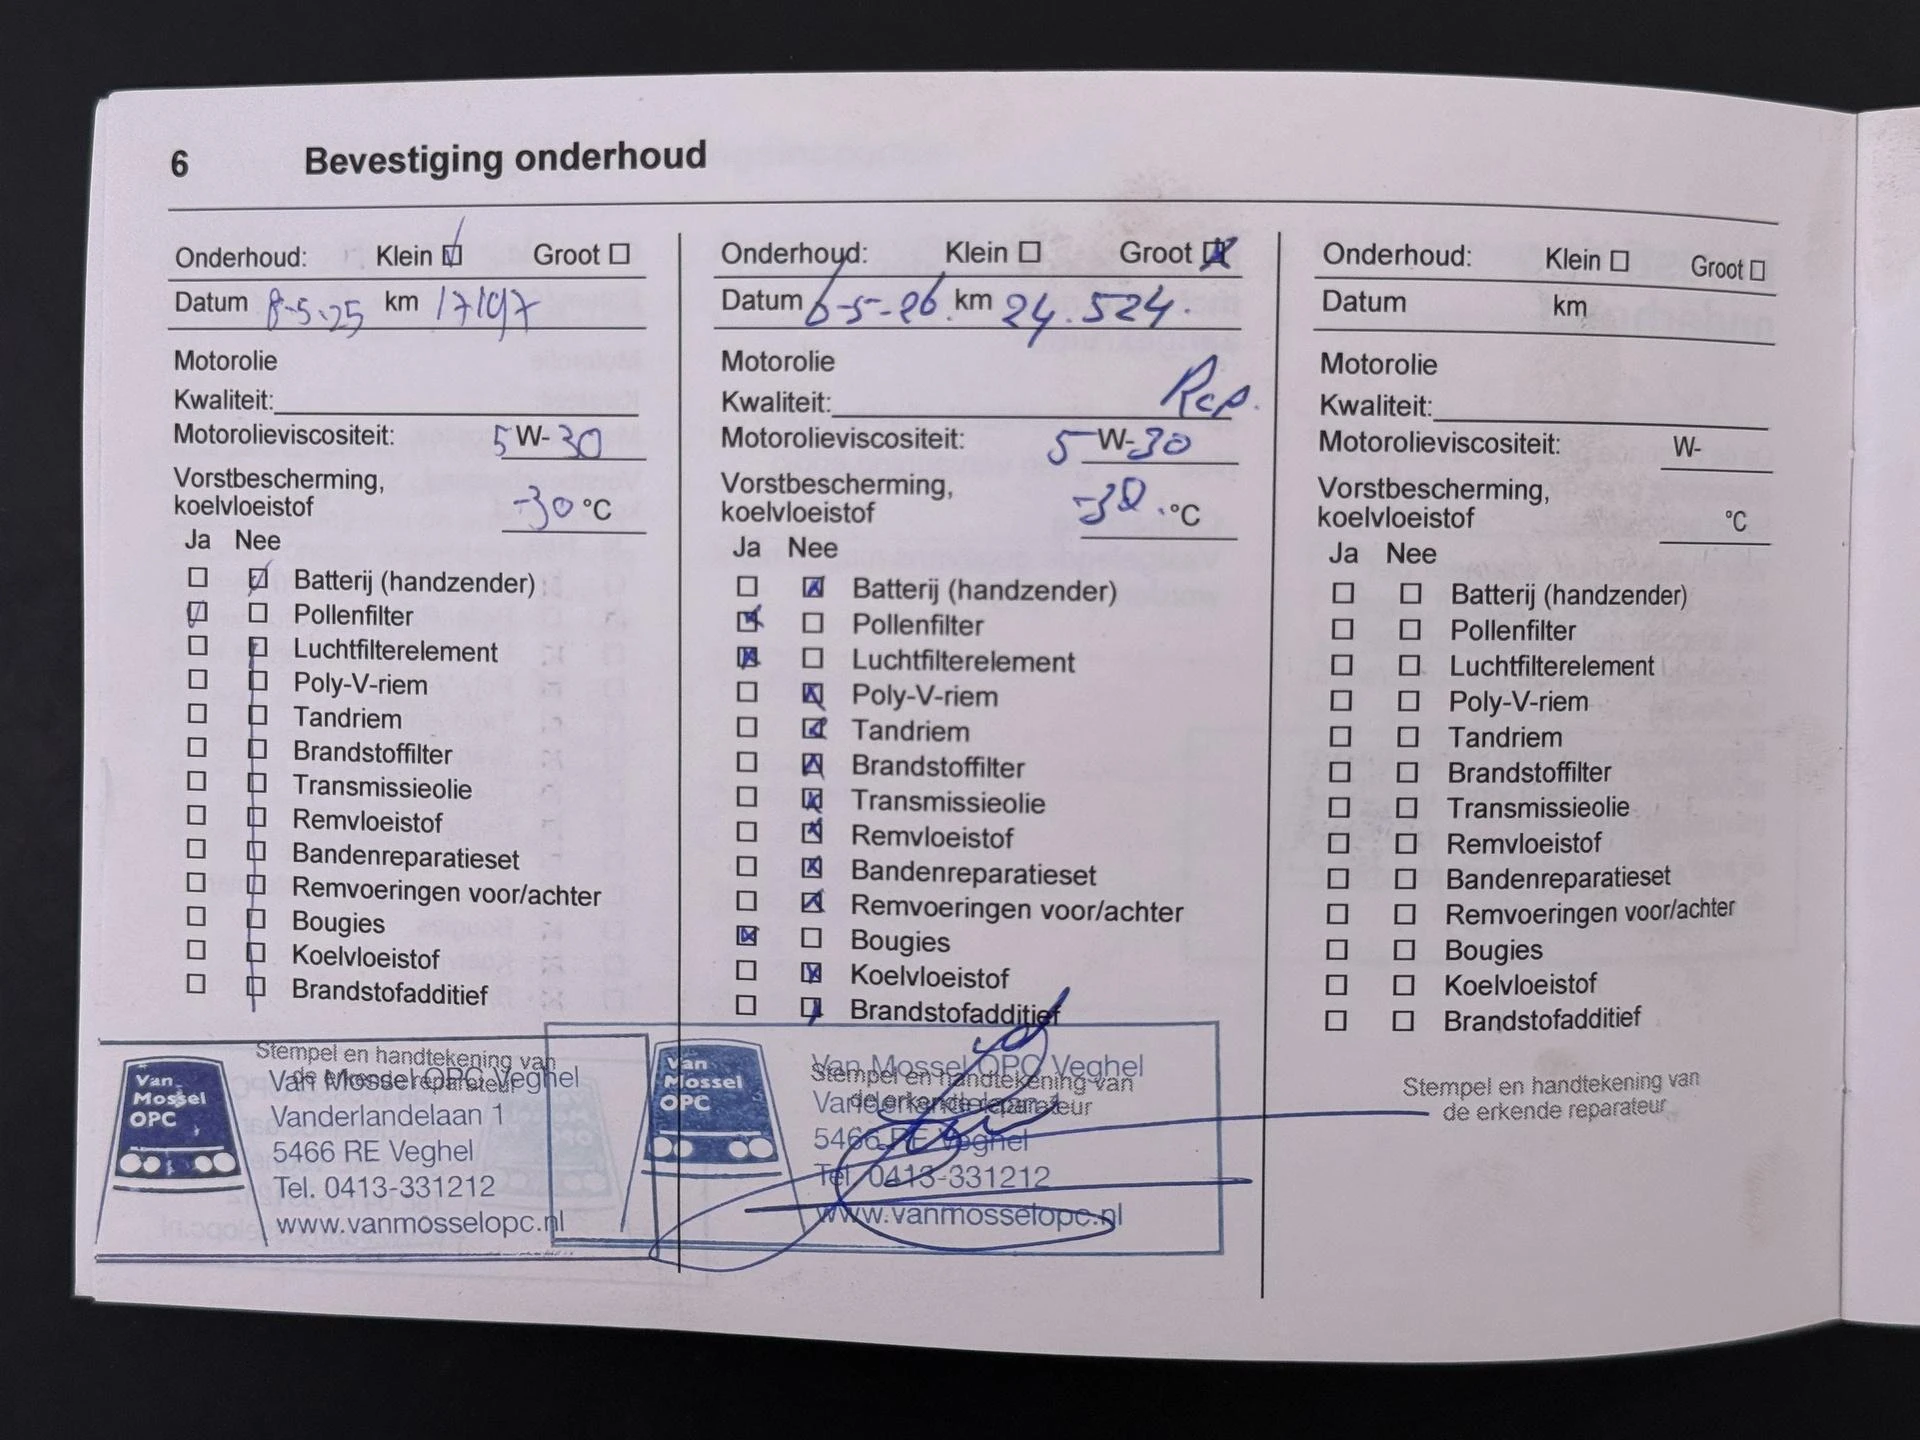 6 Bevestiging onderhoud
Onderhoud: Klein Groot
Datum 8-5-25 km 17197
Motorolie
Kwaliteit:
Motorolieviscositeit: 5 W-30
Vorstbescherming,
koelvloeistof -30 °C
Ja Nee
Batterij (handzender)
Pollenfilter
Luchtfilterelement
Poly-V-riem
Tandriem
Brandstoffilter
Transmissieolie
Remvloeistof
Bandenreparatieset
Remvoeringen voor/achter
Bougies
Koelvloeistof
Brandstofadditief
Stempel en handtekening van
de erkende reparateur
Van Mossel OPC
Van Mossel OPC Veghel
Vanderlandelaan 1
5466 RE Veghel
Tel. 0413-331212
www.vanmosselopc.nl
Onderhoud: Klein Groot
Datum 6-5-26. km 24.524.
Motorolie
Kwaliteit: Rep.
Motorolieviscositeit: 5 W-30
Vorstbescherming,
koelvloeistof -30 °C
Ja Nee
Batterij (handzender)
Pollenfilter
Luchtfilterelement
Poly-V-riem
Tandriem
Brandstoffilter
Transmissieolie
Remvloeistof
Bandenreparatieset
Remvoeringen voor/achter
Bougies
Koelvloeistof
Brandstofadditief
Stempel en handtekening van
de erkende reparateur
Van Mossel OPC
Van Mossel OPC Veghel
Vanderlandelaan 1
5466 RE Veghel
Tel. 0413-331212
www.vanmosselopc.nl
Onderhoud: Klein Groot
Datum km
Motorolie
Kwaliteit:
Motorolieviscositeit: W-
Vorstbescherming,
koelvloeistof °C
Ja Nee
Batterij (handzender)
Pollenfilter
Luchtfilterelement
Poly-V-riem
Tandriem
Brandstoffilter
Transmissieolie
Remvloeistof
Bandenreparatieset
Remvoeringen voor/achter
Bougies
Koelvloeistof
Brandstofadditief
Stempel en handtekening van
de erkende reparateur